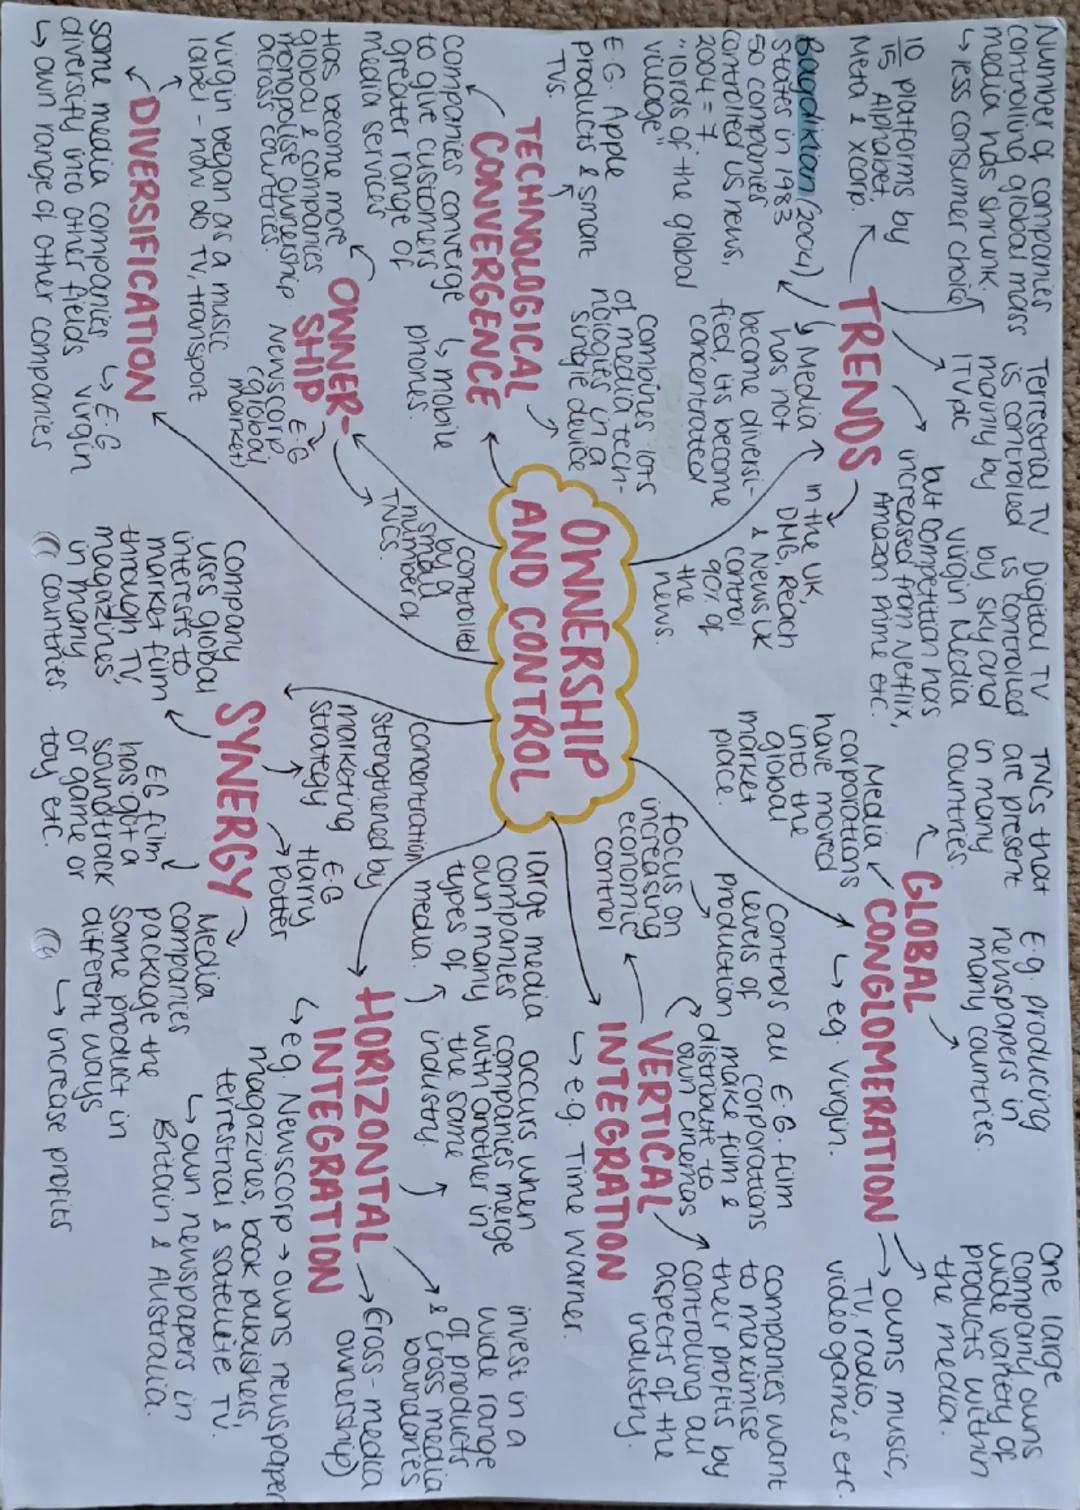 OWNERSHIP
AND CONTROL
TRENDS
Number of companies
controlling global mass
media has shrunk
↳ less consumer choice
10/15 platforms by
Alphabet,
Meta & xcorp.
Bagdikian (2004)
States in 1983
50 companies
controlled US news,
2004 = 7.
"lords of the global
village"
↳ Media
has not
become diversi-
fied, its become
concentrated
Terrestrial TV
is controlled
mainly by
ITVplc
Digital TV
is controlled
by sky and
virgin Media
but competition has
increased from Netflix,
Amazon Prime etc.
In the UK,
DMG, Reach
& News UK
control
90% of
the
news.
GLOBAL
CONGLOMERATION
TNCs that
are present
in many
countries.
E.g. producing
newspapers in
many countries.
One large
company owns
wide variety of
products within
the media.
→ owns music,
TV, radio,
video games etc.
↳ eg. Virgin.
Media
corporations
have moved
into the
global
market
place.
VERTICAL
INTEGRATION
↳ e.g. Time warner.
focus on
increasing
economic
control
controls all
levels of
production
E.G. film
corporations
make film &
distribute to
own cinemas
companies want
to maximise
their profits by
controlling all
aspects of the
industry.
HORIZONTAL
INTEGRATION
large media
companies
own many
types of
media.
occurs when
companies merge
with another in
the same
industry.
invest in a
wide range
of products
& cross media
boundaries
→ (cross-media
ownership)
↳ e.g. Newscorp → owns newspaper
magazines, book publishers,
terrestrial & satellite TV.
↳ own newspapers in
Britain & Australia.
concentration
strengthened by
marketing
strategy
E.G
Harry
Potter
SYNERGY
Company
uses global
interests to
market film
through TV,
magazines
in many
countries.
EG film
has got a
soundtrack
or game or
toy etc.
Media
companies
package the
same product in
different ways
↳ increase profits
TECHNOLOGICAL
CONVERGENCE
E.G. Apple
products & smart
TVs.
combines lots
of media tech-
nologies in a
single device
companies converge
to give customers
greater range of
media services
↳ mobile
phones.
OWNER-
SHIP
Has become more
global & companies
monopolise ownership
across countries
E.G
Newscorp
(global
market)
controlled
by a
small
number of
TNCS.
DIVERSIFICATION
virgin began as a music
label - now do TV, transport
some media companies
diversify into other fields
↳ own range of other companies
↳ E.G
virgin